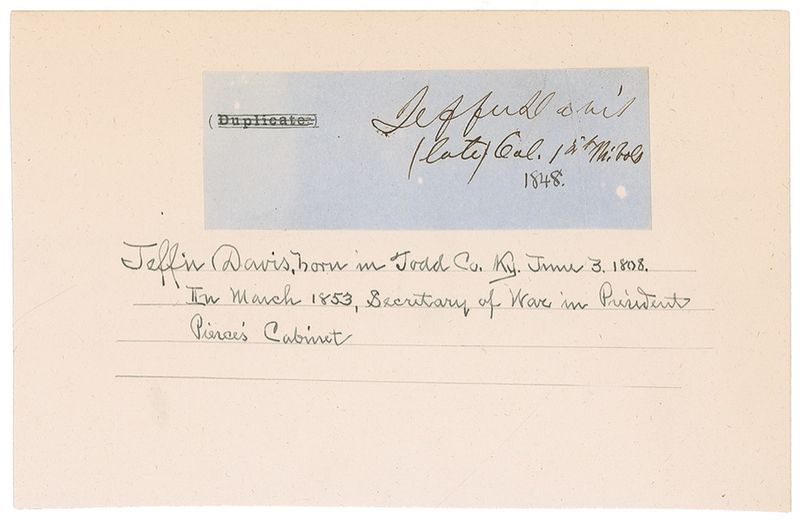 (Duplicate)
Jeffn Davis
(late) Col. 1st Mi. Vols
1848.
Jeffn Davis, born in Todd Co. Ky. June 3. 1808.
In March 1853, Secretary of War in President
Pierce's Cabinet